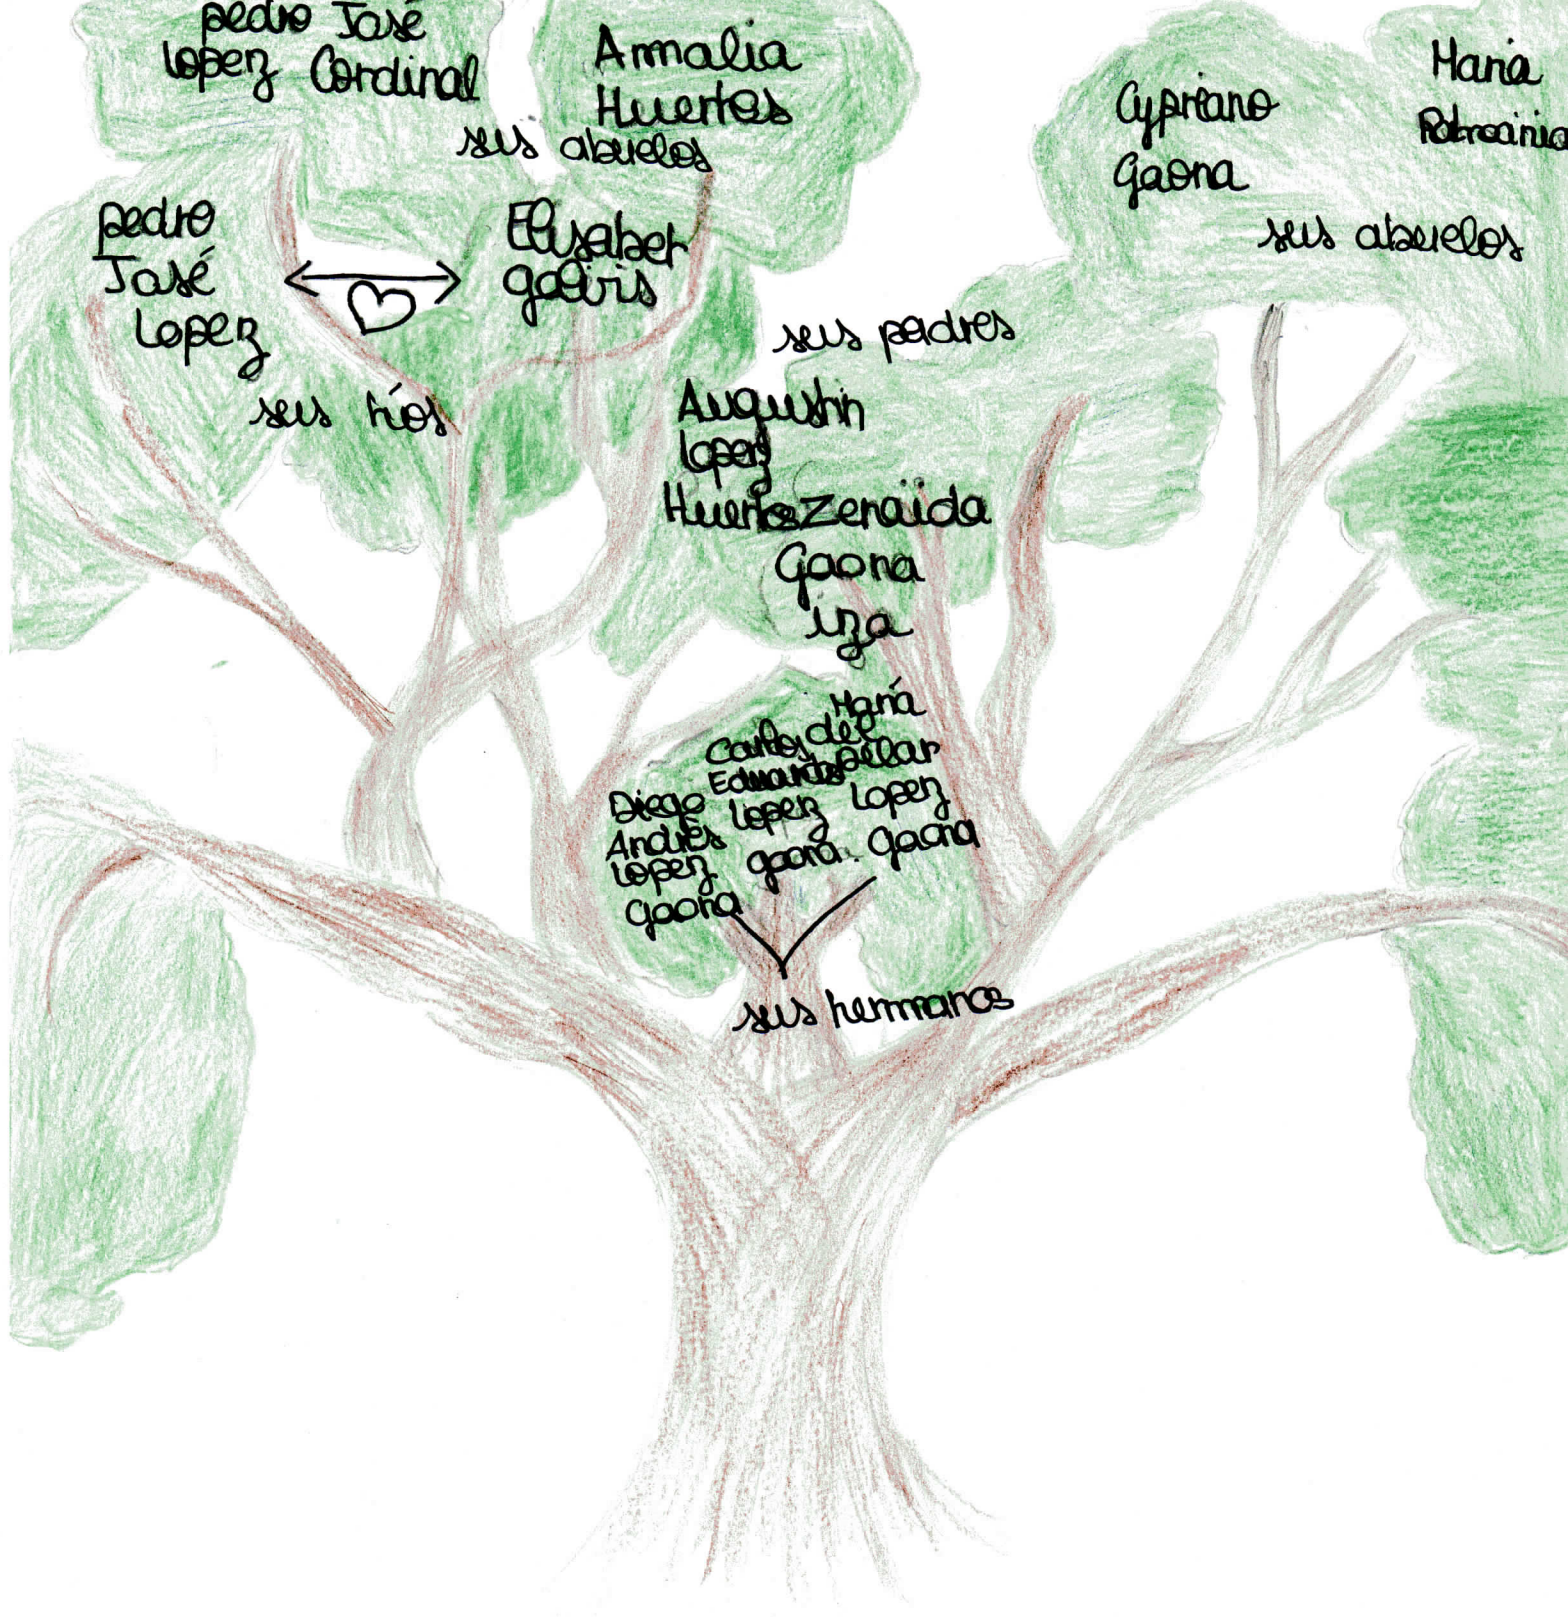 pedro José
Lopez Cordinal
Amalia
Huertos
sus abuelos
Cypriano
Gaona
Maria
sus abuelos
pedro
José
Lopez
Elysabet
galvis
sus tíos
sus padres
Augustin
Lopez
Huertos
Zenaïda
Gaona
iza
Diego
Andrès
Lopez
Gaona
Carlos
Eduardo
Lopez
gaona.
María
del
pilar
Lopez
Gaona
sus hermanos